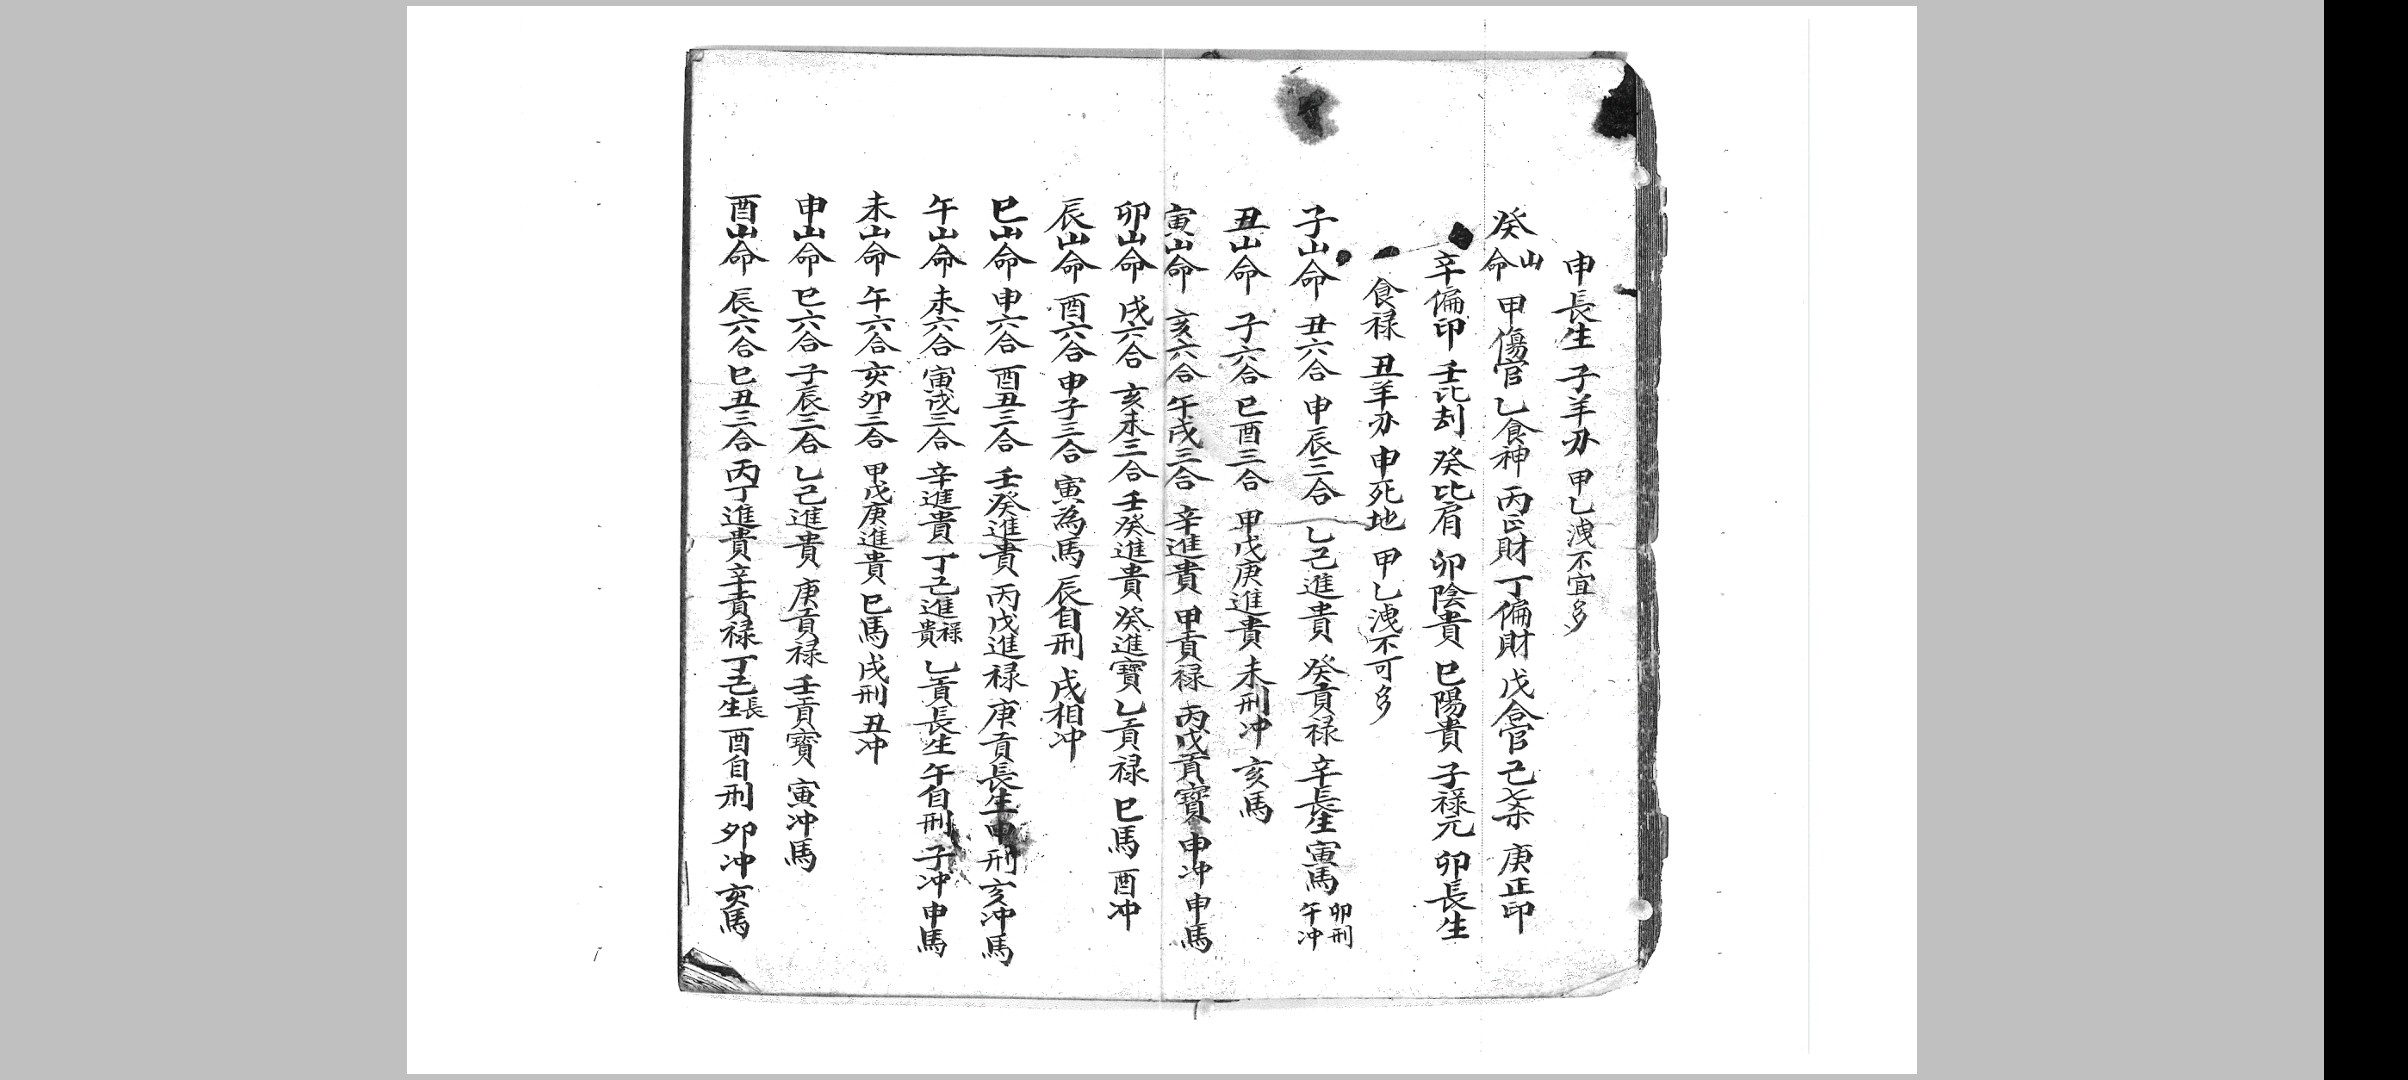 申長生 子羊刃 甲乙洩不宜多
癸山命 甲傷官 乙食神 丙正財 丁偏財 戊合官 己七杀 庚正印
辛偏印 壬比刦 癸比肩 卯陰貴 巳陽貴 子禄元 卯長生
食禄 丑羊刃 申死地 甲乙洩不可多
子山命 丑六合 申辰三合 乙己進貴 癸貢禄 辛長生 寅馬 卯刑 午冲
丑山命 子六合 巳酉三合 甲戊庚進貴 未刑冲 亥馬
寅山命 亥六合 午戌三合 辛進貴 甲貢禄 丙戊貢寳 申冲 申馬
卯山命 戌六合 亥未三合 壬癸進貴 癸進寳 乙貢禄 巳馬 酉冲
辰山命 酉六合 申子三合 寅為馬 辰自刑 戌相冲
巳山命 申六合 酉丑三合 壬癸進貴 丙戊進禄 庚貢長生 申刑 亥冲馬
午山命 未六合 寅戌三合 辛進貴 丁己進禄貴 乙貢長生 午自刑 子冲 申馬
未山命 午六合 亥卯三合 甲戊庚進貴 巳馬 戌刑 丑冲
申山命 巳六合 子辰三合 乙己進貴 庚貢禄 壬貢寳 寅冲馬
酉山命 辰六合 巳丑三合 丙丁進貴 辛貢禄 丁己長生 酉自刑 卯冲 亥馬